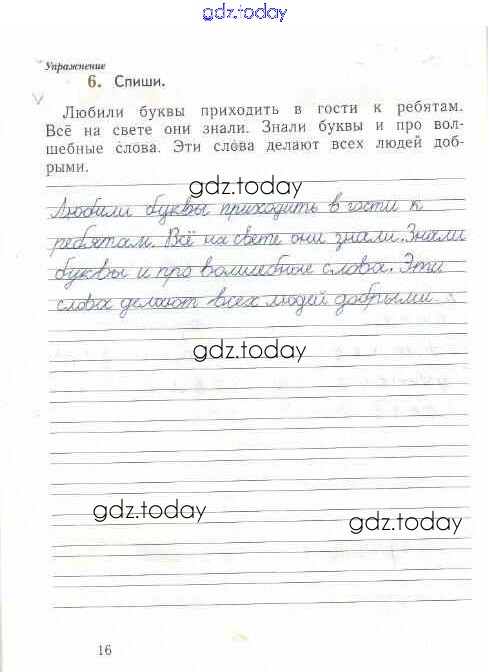 gdz.today
Упражнение
6. Спиши.
Любили буквы приходить в гости к ребятам.
Всё на свете они знали. Знали буквы и про вол-
шебные слова. Эти слова делают всех людей доб-
рыми.
gdz.today
Любили буквы приходить в гости к
ребятам. Всё на свете они знали. Знали
буквы и про волшебные слова. Эти
слова делают всех людей добрыми.
gdz.today
gdz.today
gdz.today
16